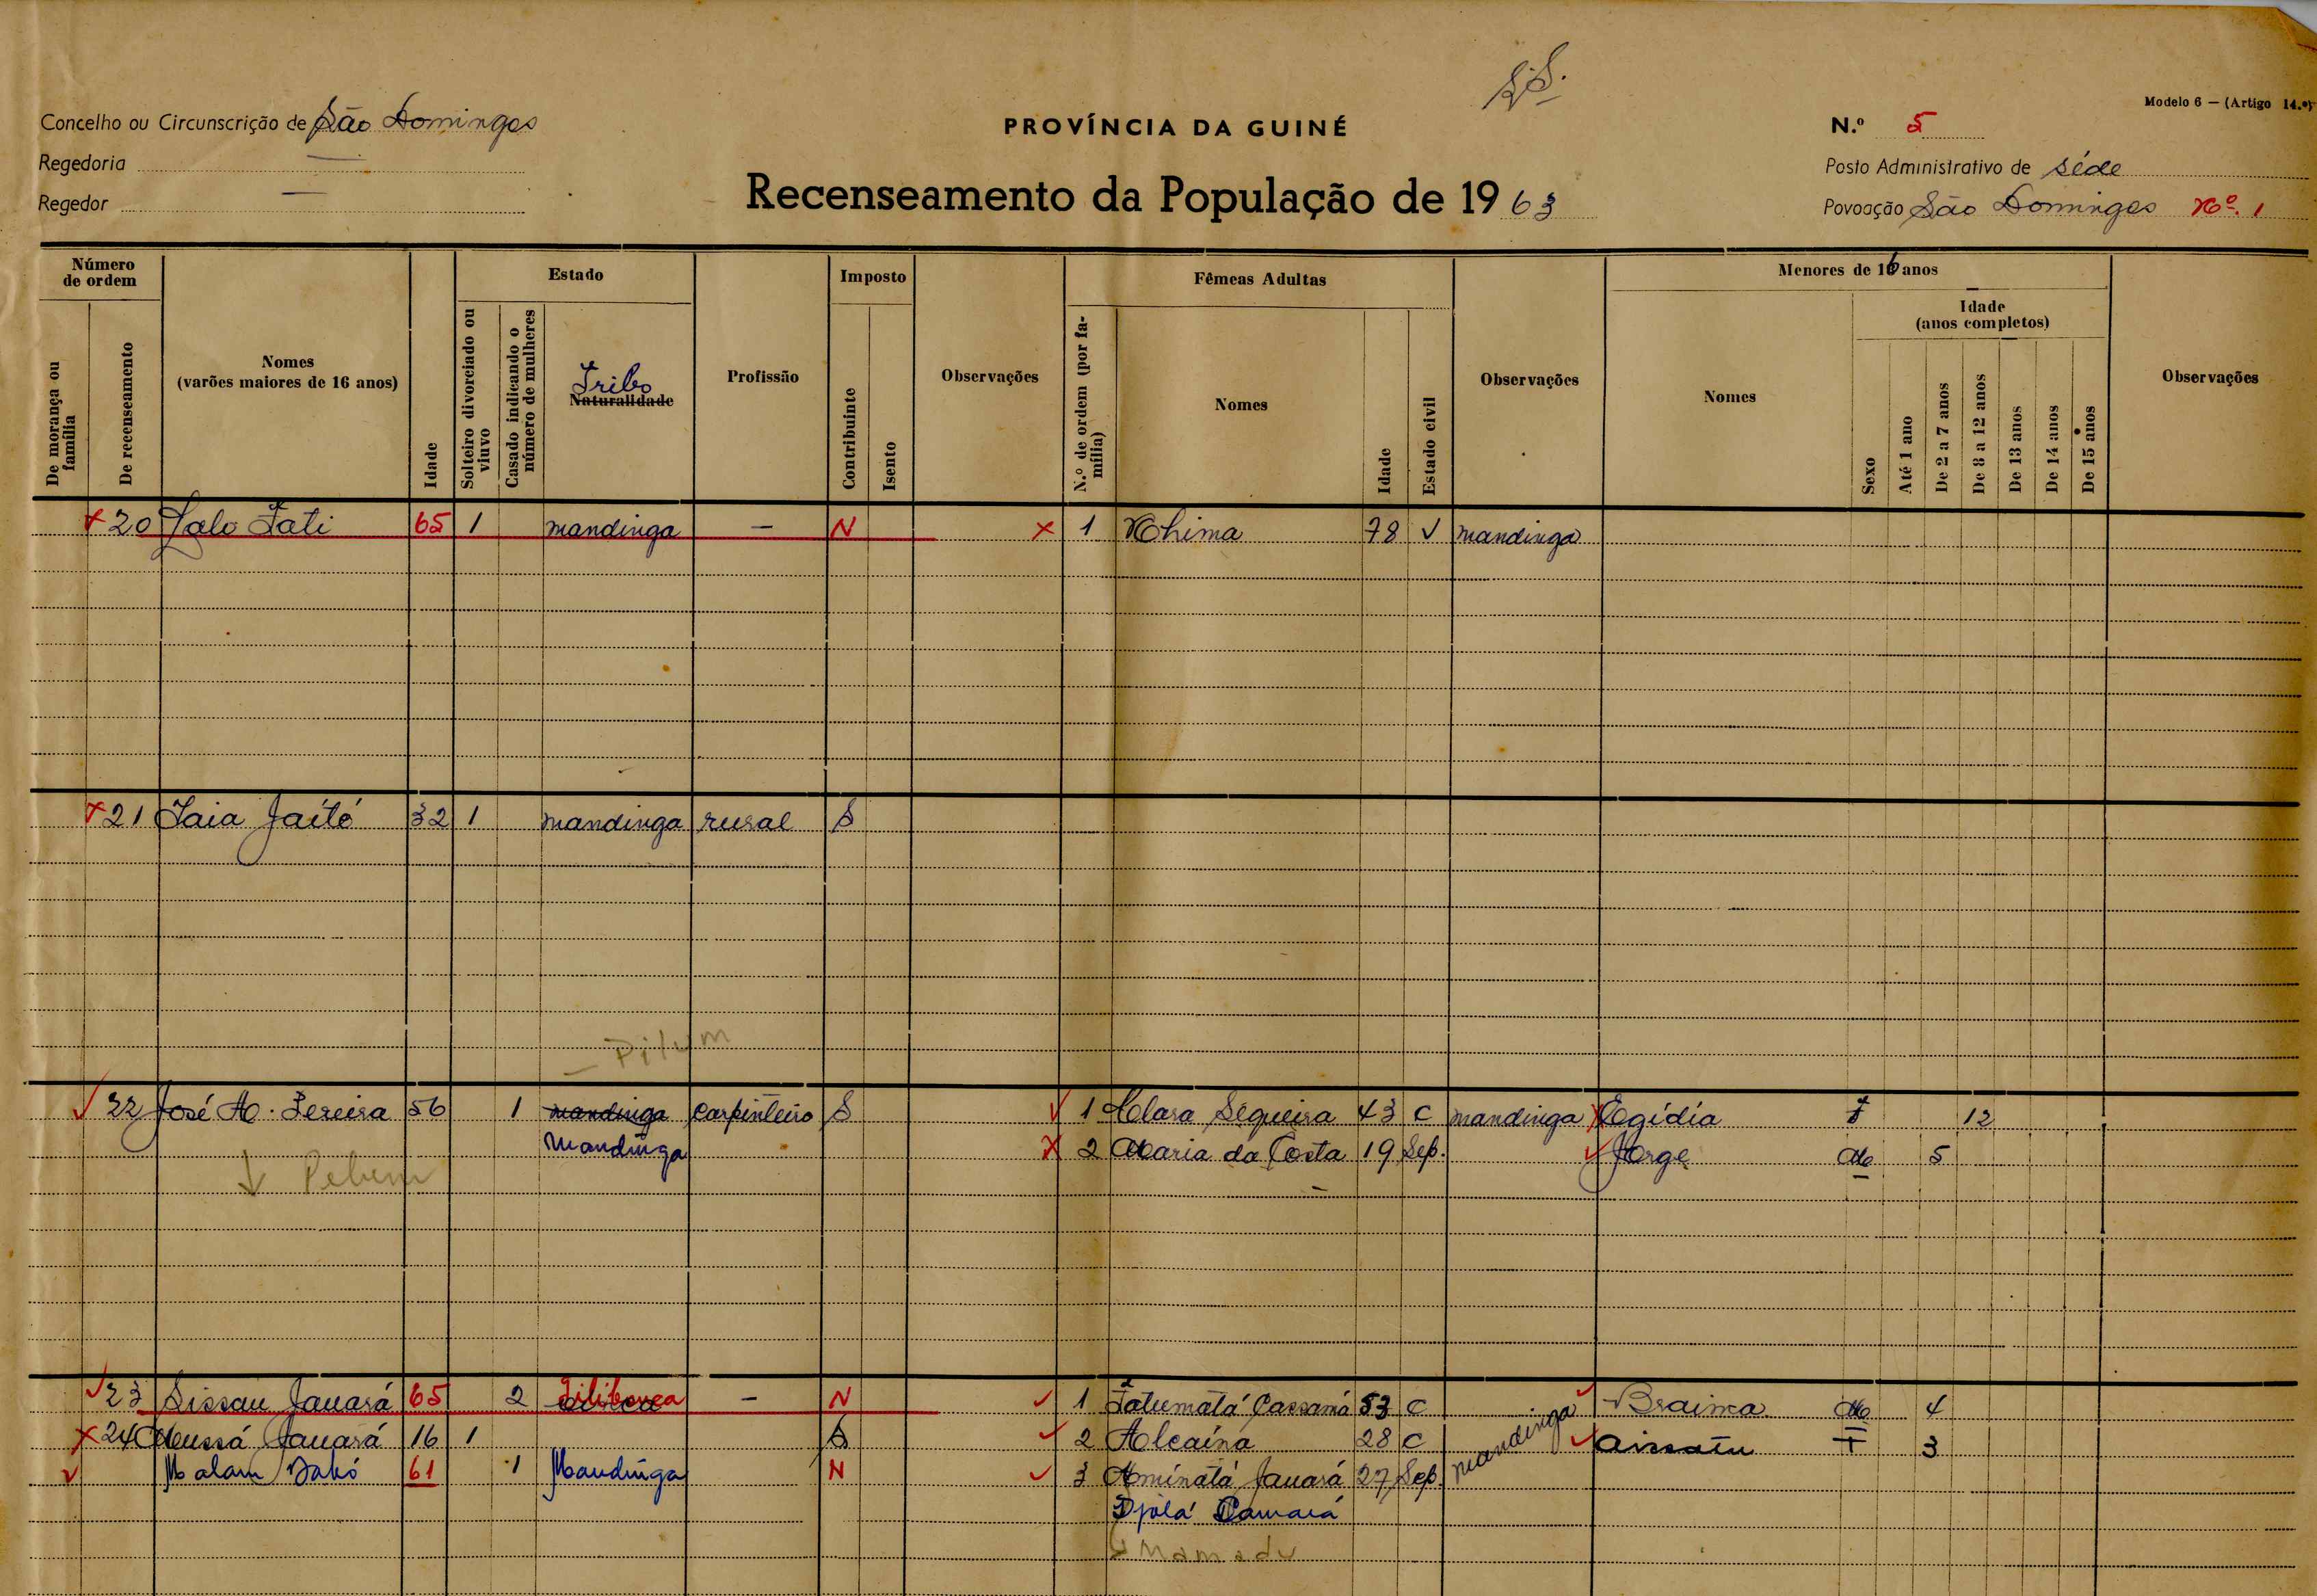 S.S.
Modelo 6 — (Artigo 14.º)
Concelho ou Circunscrição de São Domingos
PROVÍNCIA DA GUINÉ
N.º 5
Regedoria —
Posto Administrativo de séde
Regedor —
Recenseamento da População de 1963
Povoação São Domingos Nº. 1
Número de ordem
Estado
Imposto
Fêmeas Adultas
Menores de 16 anos
Idade (anos completos)
De morança ou família
De recenseamento
Nomes (varões maiores de 16 anos)
Idade
Solteiro divorciado ou viuvo
Casado indicando o número de mulheres
Tribo
Naturalidade
Profissão
Contribuinte
Isento
Observações
N.º de ordem (por família)
Nomes
Idade
Estado civil
Observações
Nomes
Sexo
Até 1 ano
De 2 a 7 anos
De 8 a 12 anos
De 13 anos
De 14 anos
De 15 anos
Observações
x 20 Lalo Fati 65 1 mandinga — N x 1 Nhima 78 V mandinga
x 21 Iaia Jaité 32 1 mandinga rural S
— Pilum
√ 22 José A. Pereira 56 1 mandinga carpinteiro S √ 1 Clara Sequeira 43 C mandinga x Egídia F 12
Mandinga x 2 Maria da Costa 19 Sep. √ Jorge M 5
↓
√ 23 Sissau Jauará 65 2 — N √ 1 Fatumatá Cassamá 53 C mandinga √ Braima M 4
x 24 Mussá Jauará 16 1 S √ 2 Alcaina 28 C √ Aissatu F 3
√ Malam 61 1 Mandinga N √ 3 Aminatá Jauará 27 Sep.
Djólá Camará
Mamadu